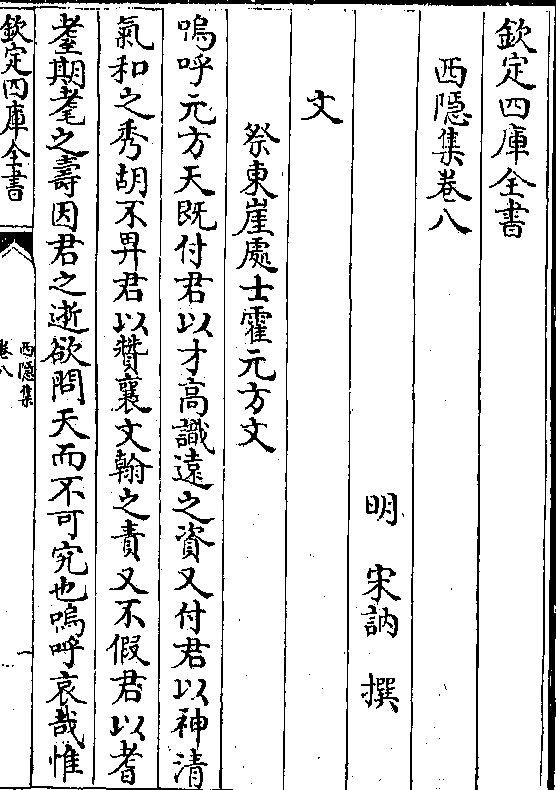 欽定四庫全書
西隱集巻八
明 宋訥 撰
文
祭東崖處士霍元方文
嗚呼元方天既付君以才高識遠之資又付君以神清
氣和之秀胡不畀君以贊襄文翰之責又不假君以耆
耋期耄之壽因君之逝欲問天而不可究也嗚呼哀哉惟
欽定四庫全書
西隱集
巻八
一